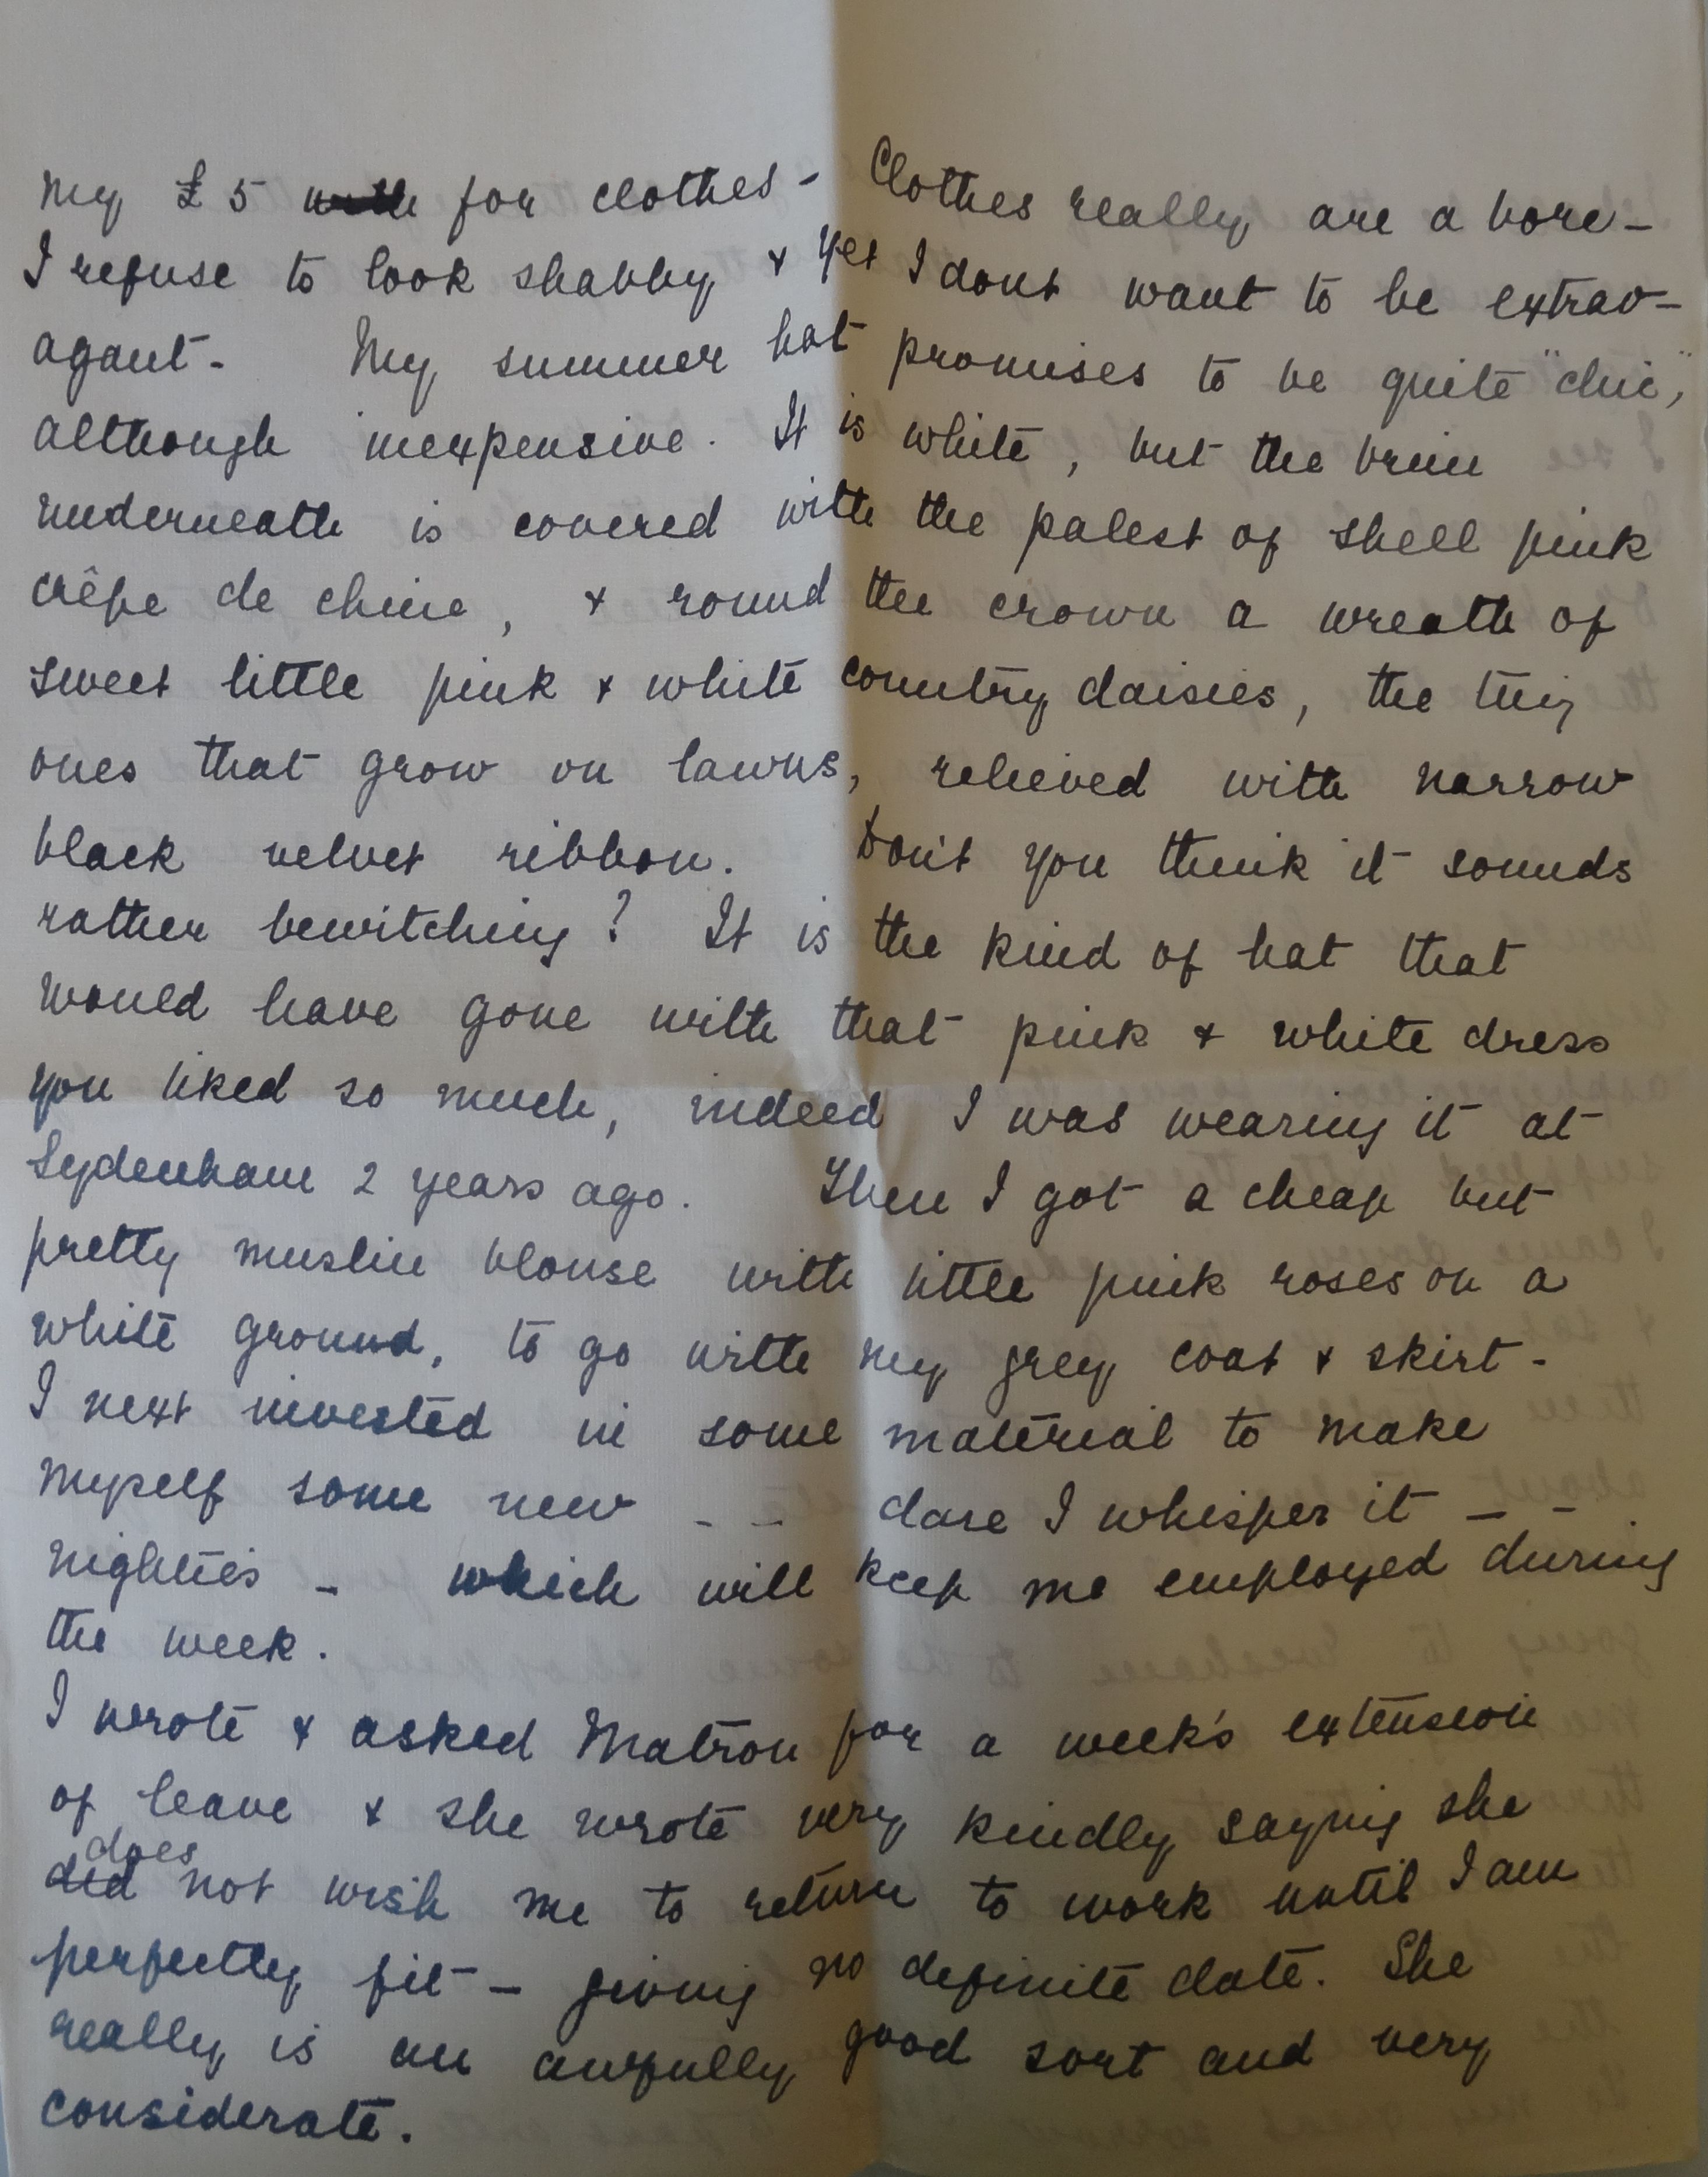 My £5 with for clothes - Clothes really are a bore -
I refuse to look shabby & yet I dont want to be extrav-
agant - My summer hat promises to be quite "chic",
although inexpensive. It is white, but the brim
underneath is covered with the palest of shell pink
crêpe de chine, & round the crown a wreath of
sweet little pink & white country daisies, the tiny
ones that grow on lawns, relieved with narrow
black velvet ribbon. Don't you think it sounds
rather bewitching? It is the kind of hat that
would have gone with that pink & white dress
you liked so much, indeed I was wearing it at
Sydenham 2 years ago. Then I got a cheap but
pretty muslin blouse with little pink roses on a
white ground, to go with my grey coat & skirt -
I next invested in some material to make
myself some new - - dare I whisper it - -
nightie's - which will keep me employed during
the week.
I wrote & asked Matron for a week's extension
of leave & she wrote very kindly saying she
does
did not wish me to return to work until I am
perfectly fit - giving no definite date. She
really is an awfully good sort and very
considerate.